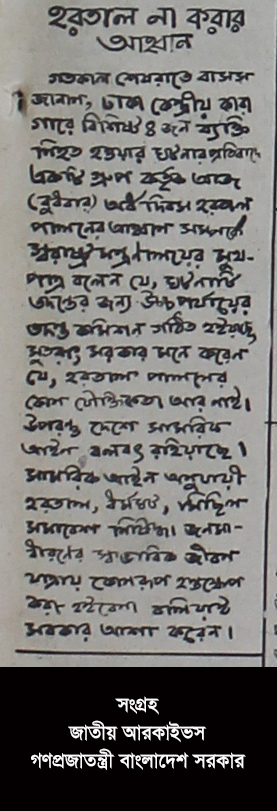 হরতাল না করার
আহ্বান
গতকাল শেষরাতে বাসস
জানান, ঢাকা কেন্দ্রীয় কারা
গারে বিশিষ্ট ৪ জন ব্যক্তি
নিহত হওয়ার ঘটনার প্রতিবাদে
একটি গ্রুপ কর্তৃক আজ
(বুধবার) অর্ধ দিবস হরতাল
পালনের আহ্বান সম্পর্কে
স্বরাষ্ট্র মন্ত্রণালয়ের মুখ-
পাত্র বলেন যে, ঘটনাটি
তদন্তের জন্য উচ্চ পর্যায়ের
তদন্ত কমিশন গঠিত হইয়াছে,
সুতরাং সরকার মনে করেন
যে, হরতাল পালনের
কোন যৌক্তিকতা আর নাই।
উপরন্তু দেশে সামরিক
আইন বলবৎ রহিয়াছে।
সামরিক আইন অনুযায়ী
হরতাল, ধর্মঘট, মিছিল
সমাবেশ নিষিদ্ধ। জনসা-
ধারণের স্বাভাবিক জীবন
যাত্রায় কোনরূপ হস্তক্ষেপ
করা হইবেনা বলিয়াই
সরকার আশা করেন।
সংগ্রহ
জাতীয় আরকাইভস
গণপ্রজাতন্ত্রী বাংলাদেশ সরকার